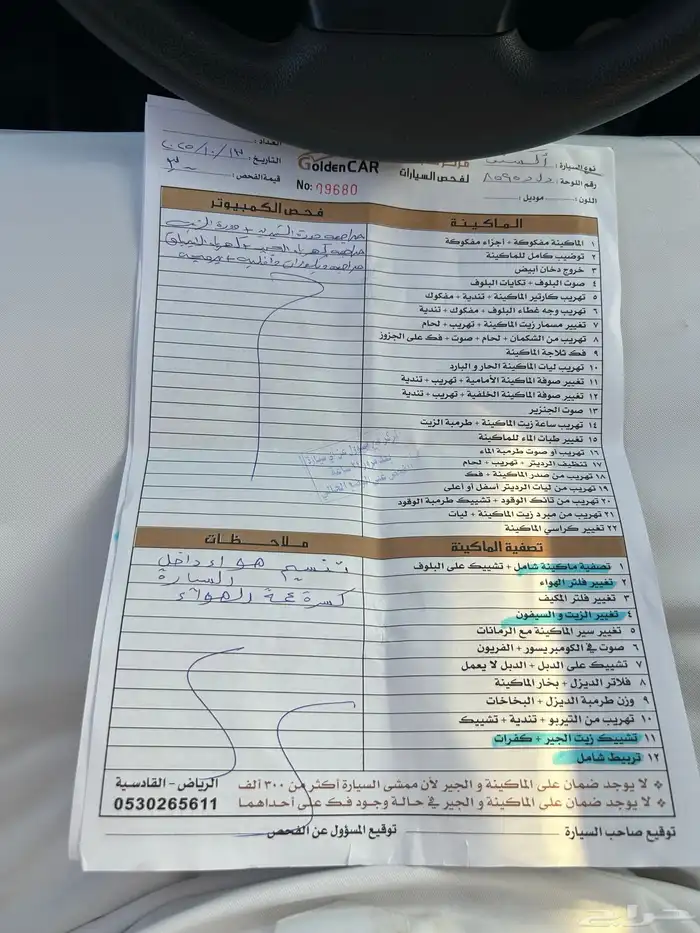 نوع السيارة:
رقم اللوحة: د د د ٨٥٩٥
اللون: موديل:
لفحص السيارات
GoldenCAR
No: 09680
العداد:
التاريخ: ٢٠٢٥/١٠/١٣
قيمة الفحص:
الماكينة
١ الماكينة مفكوكة + أجزاء مفكوكة
٢ توضيب كامل للماكينة
٣ خروج دخان أبيض
٤ صوت البلوف + تكايات البلوف
٥ تهريب كارتير الماكينة + تندية + مفكوك
٦ تهريب وجه غطاء البلوف + مفكوك + تندية
٧ تغيير مسمار زيت الماكينة + تهريب + لحام
٨ تهريب من الشكمان + لحام + صوت + فك على الجزوز
٩ فك ثلاجة الماكينة
١٠ تهريب ليات الماكينة الحار و البارد
١١ تغيير صوفة الماكينة الأمامية + تهريب + تندية
١٢ تغيير صوفة الماكينة الخلفية + تهريب + تندية
١٣ صوت الجنزير
١٤ تهريب ساعة زيت الماكينة + طرمبة الزيت
١٥ تغيير طبات الماء للماكينة
١٦ تهريب أو صوت طرمبة الماء
١٧ تنظيف الرديتر + تهريب + لحام
١٨ تهريب من صدر الماكينة + فك
١٩ تهريب من ليات الرديتر أسفل أو أعلى
٢٠ تهريب من تانك الوقود + تشييك طرمبة الوقود
٢١ تهريب من مبرد زيت الماكينة + ليات
٢٢ تغيير كراسي الماكينة
فحص الكمبيوتر
تصفية الماكينة
١ تصفية ماكينة شامل + تشييك على البلوف
٢ تغيير فلتر الهواء
٣ تغيير فلتر المكيف
٤ تغيير الزيت و السيفون
٥ تغيير سير الماكينة مع الرمانات
٦ صوت في الكومبريسور + الفريون
٧ تشييك على الدبل + الدبل لا يعمل
٨ فلاتر الديزل + بخار الماكينة
٩ وزن طرمبة الديزل + البخاخات
١٠ تهريب من التيربو + تندية + تشييك
١١ تشييك زيت الجير + كفرات
١٢ تربيط شامل
ملاحظات
تنسيم هواء داخل
السيارة
الهواء
❖ لا يوجد ضمان على الماكينة و الجير لأن ممشى السيارة أكثر من ٣٠٠ ألف
❖ لا يوجد ضمان على الماكينة و الجير في حالة وجود فك على أحداهما
الرياض - القادسية
0530265611
توقيع صاحب السيارة
توقيع المسؤول عن الفحص
حراج